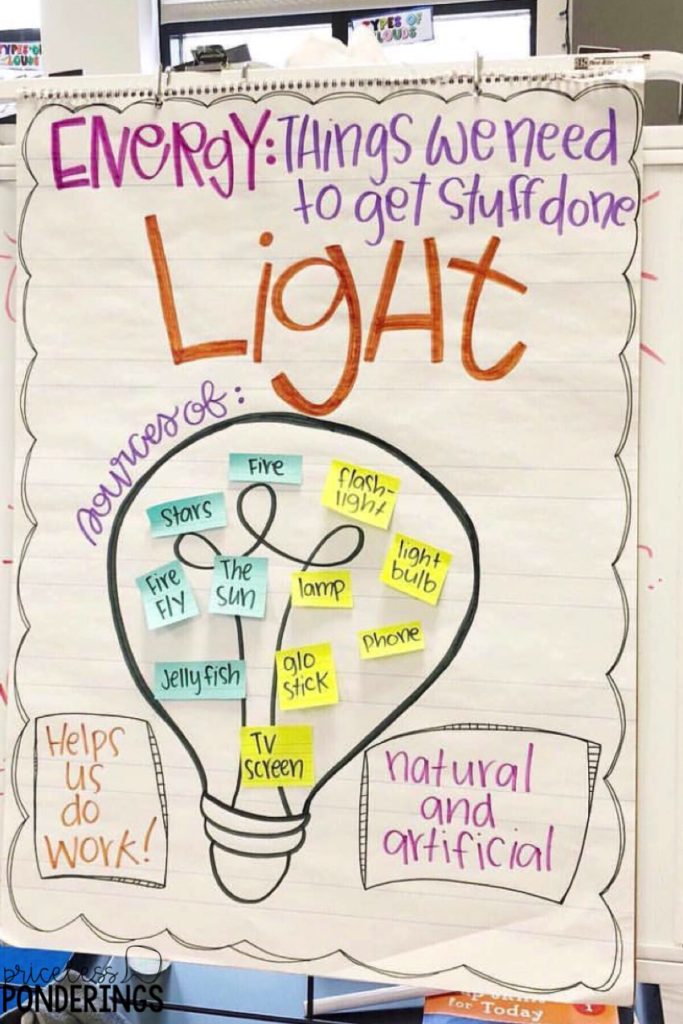 TYPES OF
CLOUDS
TYPES OF
CLOUDS
ENERGY: THINGS we need
to get stuff done
LigHt
sources of:
Fire
flash-
light
Stars
light
bulb
Fire
FLY
The
sun
lamp
phone
Jellyfish
glo
stick
TV
screen
Helps
us
do
work!
natural
and
artificial
priceless
PONDERINGS
for Today